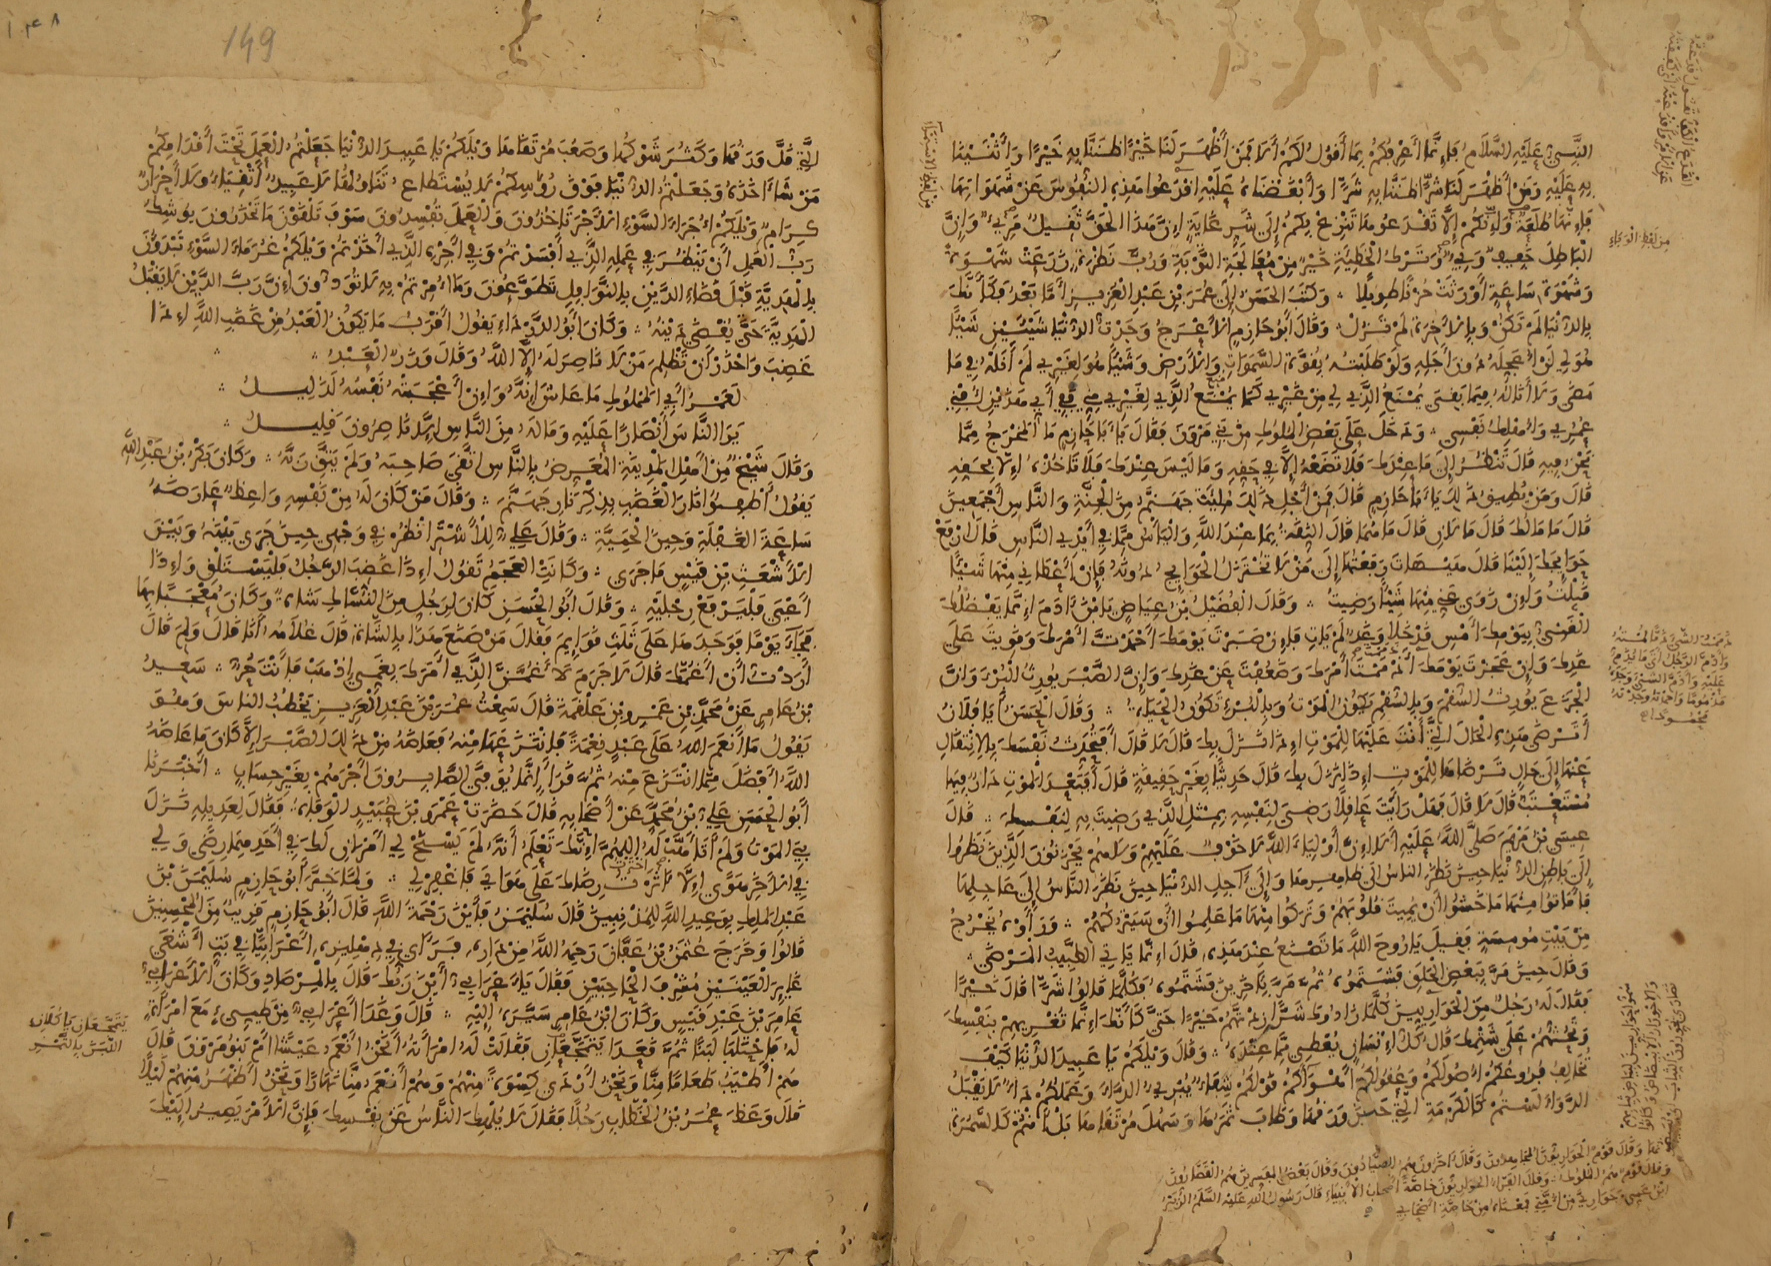 النَّبِيُّ عَلَيْهِ السَّلَامُ فَإِنَّمَا أَعْرِفُكُمْ بِمَا أَقُولُ لَكُمْ أَلَا فَمَنْ أَظْهَرَ لَنَا خَيْرًا ظَنَنَّا بِهِ خَيْرًا وَأَثْنَيْنَا
بِهِ عَلَيْهِ وَمَنْ أَظْهَرَ لَنَا شَرًّا ظَنَنَّا بِهِ شَرًّا وَأَبْغَضْنَاهُ عَلَيْهِ اقْدَعُوا هَذِهِ النُّفُوسَ عَنْ شَهَوَاتِهَا
فَإِنَّهَا طُلَعَةٌ وَإِنَّكُمْ إِلَّا تَقْدَعُوهَا تَنْزِعْ بِكُمْ إِلَى شَرِّ غَايَةٍ إِنَّ هَذَا الْحَقَّ ثَقِيلٌ مَرِيءٌ وَإِنَّ
الْبَاطِلَ خَفِيفٌ وَبِيءٌ وَتَرْكُ الْخَطِيئَةِ خَيْرٌ مِنْ مُعَالَجَةِ التَّوْبَةِ وَرُبَّ نَظْرَةٍ زَرَعَتْ شَهْوَةً
وَشَهْوَةِ سَاعَةٍ أَوْرَثَتْ حُزْنًا طَوِيلًا وَكَتَبَ الْحَسَنُ إِلَى عُمَرَ بْنِ عَبْدِ الْعَزِيزِ أَمَّا بَعْدُ فَكَأَنَّكَ
بِالدُّنْيَا لَمْ تَكُنْ وَبِالْآخِرَةِ لَمْ تَزَلْ وَقَالَ أَبُو حَازِمٍ الْأَعْرَجُ وَجَدْتُ الدُّنْيَا شَيْئَيْنِ شَيْئًا
هُوَ لِي لَنْ أُعْجَلَهُ دُونَ أَجَلِهِ وَلَوْ طَلَبْتُهُ بِقُوَّةِ السَّمَوَاتِ وَالْأَرْضِ وَشَيْئًا هُوَ لِغَيْرِي لَمْ أَنَلْهُ فِيمَا
مَضَى وَلَا أَنَالُهُ فِيمَا بَقِيَ يُمْنَعُ الَّذِي لِي مِنْ غَيْرِي كَمَا يُمْنَعُ الَّذِي لِغَيْرِي مِنِّي فَفِي أَيِّ هَذَيْنِ أُفْنِي
عُمْرِي وَأُهْلِكُ نَفْسِي وَدَخَلَ عَلَى بَعْضِ الْمُلُوكِ مِنْ بَنِي مَرْوَانَ فَقَالَ يَا أَبَا حَازِمٍ مَا الْمَخْرَجُ مِمَّا
نَحْنُ فِيهِ قَالَ تَنْظُرُ إِلَى مَا عِنْدَكَ فَلَا تَضَعْهُ إِلَّا فِي حَقِّهِ وَمَا لَيْسَ عِنْدَكَ فَلَا تَأْخُذْهُ إِلَّا بِحَقِّهِ
قَالَ وَمَنْ يُطِيقُ ذَلِكَ يَا أَبَا حَازِمٍ قَالَ فَمِنْ أَجْلِ ذَلِكَ مُلِئَتْ جَهَنَّمُ مِنَ الْجِنَّةِ وَالنَّاسِ أَجْمَعِينَ
قَالَ مَا مَالُكَ قَالَ مَالَانِ قَالَ مَا هُمَا قَالَ الثِّقَةُ بِمَا عِنْدَ اللَّهِ وَالْيَأْسُ مِمَّا فِي أَيْدِي النَّاسِ قَالَ ارْفَعْ
حَوَائِجَكَ إِلَيْنَا قَالَ هَيْهَاتَ رَفَعْتُهَا إِلَى مَنْ لَا تُخْتَزَلُ الْحَوَائِجُ دُونَهُ فَإِنْ أَعْطَانِي مِنْهَا شَيْئًا
قَبِلْتُ وَإِنْ زَوَى عَنِّي مِنْهَا شَيْئًا رَضِيتُ وَقَالَ الْفُضَيْلُ بْنُ عِيَاضٍ يَا بْنَ آدَمَ إِنَّمَا يَفْضُلُكَ
الْغَنِيُّ بِيَوْمِكَ أَمْسِ قَدْ خَلَا وَغَدٌ لَمْ يَأْتِ فَإِنْ صَبَرْتَ يَوْمَكَ أَحْمَدْتَ أَمْرَكَ وَقَوِيتَ عَلَى
غَدِكَ وَإِنْ عَجَزْتَ يَوْمَكَ أَذْمَمْتَ أَمْرَكَ وَضَعُفْتَ عَنْ غَدِكَ وَإِنَّ الصَّبْرَ يُورِثُ الْبُرْءَ وَإِنَّ
الْجَزَعَ يُورِثُ السُّقْمَ وَبِالسُّقْمِ يَكُونُ الْمَوْتُ وَبِالْبُرْءِ تَكُونُ الْحَيَاةُ وَقَالَ الْحَسَنُ يَا فُلَانُ
أَتَرْضَى هَذِهِ الْحَالَ الَّتِي أَنْتَ عَلَيْهَا لِلْمَوْتِ إِذَا نَزَلَ بِكَ قَالَ لَا قَالَ أَفَتُحَدِّثُ نَفْسَكَ بِالِانْتِقَالِ
عَنْهَا إِلَى حَالٍ تَرْضَاهَا لِلْمَوْتِ إِذَا نَزَلَ بِكَ قَالَ حَدِيثًا بِغَيْرِ حَقِيقَةٍ قَالَ أَفَبَعْدَ الْمَوْتِ دَارٌ فِيهَا
مُسْتَعْتَبٌ قَالَ لَا قَالَ فَهَلْ رَأَيْتَ عَاقِلًا رَضِيَ لِنَفْسِهِ بِمِثْلِ الَّذِي رَضِيتَ بِهِ لِنَفْسِكَ قَالَ
عِيسَى بْنُ مَرْيَمَ صَلَّى اللَّهُ عَلَيْهِ أَلَا إِنَّ أَوْلِيَاءَ اللَّهِ لَا خَوْفٌ عَلَيْهِمْ وَلَا هُمْ يَحْزَنُونَ الَّذِينَ نَظَرُوا
إِلَى بَاطِنِ الدُّنْيَا حِينَ نَظَرَ النَّاسُ إِلَى ظَاهِرِهَا وَإِلَى آجِلِ الدُّنْيَا حِينَ نَظَرَ النَّاسُ إِلَى عَاجِلِهَا
فَأَمَاتُوا مِنْهَا مَا خَشُوا أَنْ يُمِيتَ قُلُوبَهُمْ وَتَرَكُوا مِنْهَا مَا عَلِمُوا أَنْ سَيَتْرُكُهُمْ وَرَأَوْهُ يَخْرُجُ
مِنْ بَيْتِ مُومِسَةٍ فَقِيلَ يَا رُوحَ اللَّهِ مَا تَصْنَعُ عِنْدَ هَذِهِ قَالَ إِنَّمَا يَأْتِي الطَّبِيبُ الْمَرْضَى
وَقَالَ حِينَ مَرَّ بِبَعْضِ الْخَلْقِ فَشَتَمُوهُ ثُمَّ مَرَّ بِآخَرِينَ فَشَتَمُوهُ فَكُلَّمَا قَالُوا شَرًّا قَالَ خَيْرًا
فَقَالَ لَهُ رَجُلٌ مِنَ الْحَوَارِيِّينَ كُلَّمَا زَادُوكَ شَرًّا زِدْتَهُمْ خَيْرًا حَتَّى كَأَنَّكَ إِنَّمَا تُغْرِيهِمْ بِنَفْسِكَ
وَتَحُثُّهُمْ عَلَى شَتْمِكَ قَالَ كُلُّ إِنْسَانٍ يُعْطِي مِمَّا عِنْدَهُ وَقَالَ وَيْلَكُمْ يَا عَبِيدَ الدُّنْيَا كَيْفَ
تُخَالِفُ فُرُوعُكُمْ أُصُولَكُمْ وَعُقُولُكُمْ أَهْوَاءَكُمْ قَوْلُكُمْ شِفَاءٌ يُبْرِئُ الدَّاءَ وَعَمَلُكُمْ دَاءٌ لَا يَقْبَلُ
الدَّوَاءَ لَسْتُمْ كَالْكَرْمَةِ الَّتِي حَسُنَ وَرَقُهَا وَطَابَ ثَمَرُهَا وَسَهُلَ مُرْتَقَاهَا بَلْ أَنْتُمْ كَالسَّمُرَةِ
وَقَالَ قَوْمٌ الْحَوَارِيُّونَ الْمُجَاهِدُونَ وَقَالَ آخَرُونَ هُمُ الصَّيَّادُونَ وَقَالَ بَعْضُ الْمُفَسِّرِينَ هُمُ الْقَصَّارُونَ
وَقَالَ قَوْمٌ هُمُ الْمُلُوكُ وَقَالَ الْفَرَّاءُ الْحَوَارِيُّونَ خَاصَّةُ أَصْحَابِ الْأَنْبِيَاءِ قَالَ رَسُولُ اللَّهِ عَلَيْهِ السَّلَمُ الزُّبَيْرُ
ابْنُ عَمَّتِي وَحَوَارِيَّ مِنْ أُمَّتِي مَعْنَاهُ مِنْ خَاصَّةِ أَصْحَابِي
١٤٨
149
الَّتِي قَلَّ وَرَقُهَا وَكَثُرَ شَوْكُهَا وَصَعُبَ مُرْتَقَاهَا وَيْلَكُمْ يَا عَبِيدَ الدُّنْيَا جَعَلْتُمُ الْعَمَلَ تَحْتَ أَقْدَامِكُمْ
مَنْ شَاءَ أَخَذَهُ وَجَعَلْتُمُ الدُّنْيَا فَوْقَ رُؤُوسِكُمْ لَا يُسْتَطَاعُ تَنَاوُلُهَا لَا عَبِيدٌ أَتْقِيَاءُ وَلَا أَحْرَارٌ
كِرَامٌ وَيْلَكُمْ أُجَرَاءَ السَّوْءِ الْأَجْرَ تَأْخُذُونَ وَالْعَمَلَ تُفْسِدُونَ سَوْفَ تَلْقَوْنَ مَا تَحْذَرُونَ يُوشِكُ
رَبُّ الْعَمَلِ أَنْ يَنْظُرَ فِي عَمَلِهِ الَّذِي أَفْسَدْتُمْ وَفِي أَجْرِهِ الَّذِي أَخَذْتُمْ وَيْلَكُمْ غُرَمَاءَ السَّوْءِ تَبْدَءُونَ
بِالْهَدِيَّةِ قَبْلَ قَضَاءِ الدَّيْنِ بِالنَّوَافِلِ تَطَوَّعُونَ وَمَا أُمِرْتُمْ بِهِ لَا تُؤَدُّونَ إِنَّ رَبَّ الدَّيْنِ لَا يَقْبَلُ
الْهَدِيَّةَ حَتَّى يُقْضَى دَيْنُهُ وَكَانَ أَبُو الدَّرْدَاءِ يَقُولُ أَقْرَبُ مَا يَكُونُ الْعَبْدُ مِنْ غَضَبِ اللَّهِ إِذَا
غَضِبَ وَاحْذَرْ أَنْ تَظْلِمَ مَنْ لَا نَاصِرَ لَهُ إِلَّا اللَّهُ وَقَالَ وَزَرُّ الْعَبْدُ
لَعَمْرُ أَبِي الْمَمْلُوكِ مَا عَاشَ إِنَّهُ وَإِنْ أَعْجَبَتْهُ نَفْسُهُ لَذَلِيلُ
يَرَى النَّاسَ أَنْصَارًا عَلَيْهِ وَمَا لَهُ مِنَ النَّاسِ إِلَّا نَاصِرُونَ قَلِيلُ
وَقَالَ شَيْخٌ مِنْ أَهْلِ الْمَدِينَةِ الْمُعَرِّضُ بِالنَّاسِ اتَّقَى صَاحِبَهُ وَلَمْ يَتَّقِ رَبَّهُ وَكَانَ بَكْرُ بْنُ عَبْدِ اللَّهِ
يَقُولُ أَطْفِئُوا نَارَ الْغَضَبِ بِذِكْرِ نَارِ جَهَنَّمَ وَقَالَ مَنْ كَانَ لَهُ مِنْ نَفْسِهِ وَاعِظٌ عَارَضَهُ
سَاعَةَ الْغَفْلَةِ وَحِينَ الْحَمِيَّةِ وَقَالَ عَلِيٌّ لِلْأَشْتَرِ انْظُرْ فِي وَجْهِي حِينَ جَرَى بَيْنَهُ وَبَيْنَ
الْأَشْعَثِ بْنِ قَيْسٍ مَا جَرَى وَكَانَتِ الْعَجَمُ تَقُولُ إِذَا غَضِبَ الرَّجُلُ فَلْيَسْتَلْقِ وَإِذَا
أَعْيَى فَلْيَرْفَعْ رِجْلَيْهِ وَقَالَ أَبُو الْحَسَنِ كَانَ لِرَجُلٍ مِنَ النُّسَّاكِ شَاةٌ وَكَانَ مُعْجَبًا بِهَا
فَجَاءَ يَوْمًا فَوَجَدَهَا عَلَى ثَلَاثِ قَوَائِمَ فَقَالَ مَنْ صَنَعَ هَذَا بِالشَّاةِ قَالَ غُلَامُهُ أَنَا قَالَ وَلِمَ قَالَ
أَرَدْتُ أَنْ أَغُمَّكَ قَالَ لَا جَرَمَ لَأَغُمَّنَّ الَّذِي أَمَرَكَ بِغَمِّي اذْهَبْ فَأَنْتَ حُرٌّ سَعِيدُ
بْنُ عَامِرٍ عَنْ مُحَمَّدِ بْنِ عَمْرِو بْنِ عَلْقَمَةَ قَالَ سَمِعْتُ عُمَرَ بْنَ عَبْدِ الْعَزِيزِ يَخْطُبُ النَّاسَ وَهُوَ
يَقُولُ مَا أَنْعَمَ اللَّهُ عَلَى عَبْدٍ نِعْمَةً فَانْتَزَعَهَا مِنْهُ فَعَاضَهُ مِنْ ذَلِكَ الصَّبْرَ إِلَّا كَانَ مَا عَاضَهُ
اللَّهُ أَفْضَلَ مِمَّا انْتَزَعَ مِنْهُ ثُمَّ قَرَأَ إِنَّمَا يُوَفَّى الصَّابِرُونَ أَجْرَهُمْ بِغَيْرِ حِسَابٍ أَخْبَرَنَا
أَبُو الْحَسَنِ عَلِيُّ بْنُ مُحَمَّدٍ عَنْ أَصْحَابِهِ قَالَ حَضَرَتْ عَمْرَو بْنَ عُبَيْدٍ الْوَفَاةُ فَقَالَ لِعَدِيلِهِ نَزَلَ
بِيَ الْمَوْتُ وَلَمْ أَتَأَهَّبْ لَهُ اللَّهُمَّ إِنَّكَ تَعْلَمُ أَنَّهُ لَمْ يَسْنَحْ لِي أَمْرَانِ لَكَ فِي أَحَدِهِمَا رِضًى وَلِي
فِي الْآخَرِ هَوًى إِلَّا آثَرْتُ رِضَاكَ عَلَى هَوَايَ فَاغْفِرْ لِي وَلَمَّا خَبَّرَ أَبُو حَازِمٍ سُلَيْمَنَ بْنَ
عَبْدِ الْمَلِكِ بِوَعِيدِ اللَّهِ لِلْمُذْنِبِينَ قَالَ سُلَيْمَنُ فَأَيْنَ رَحْمَةُ اللَّهِ قَالَ أَبُو حَازِمٍ قَرِيبٌ مِنَ الْمُحْسِنِينَ
قَالُوا وَخَرَجَ عُثْمَنُ بْنُ عَفَّانَ رَحِمَهُ اللَّهُ مِنْ دَارِهِ فَرَأَى فِي دِهْلِيزِهِ أَعْرَابِيًّا فِي بَتٍّ أَشْغَى
غَائِرَ الْعَيْنَيْنِ مُشْرِفَ الْحَاجِبَيْنِ فَقَالَ يَا أَعْرَابِيُّ أَيْنَ رَبُّكَ قَالَ بِالْمِرْصَادِ وَكَانَ الْأَعْرَابِيُّ
عَامِرَ بْنَ عَبْدِ قَيْسٍ وَكَانَ ابْنُ عَامِرٍ سَيَّرَهُ إِلَيْهِ قَالَ وَغَدَا أَعْرَابِيٌّ مِنْ طَيِّئٍ مَعَ امْرَأَةٍ
لَهُ فَاحْتَلَبَا لَبَنًا ثُمَّ قَعَدَا يَتَمَجَّعَانِ فَقَالَتْ لَهُ امْرَأَتُهُ أَنَحْنُ أَنْعَمُ عَيْشًا أَمْ بَنُو مَرْوَانَ قَالَ
هُمْ أَطْيَبُ طَعَامًا مِنَّا وَنَحْنُ أَرْدَى كِسْوَةً مِنْهُمْ وَهُمْ أَنْعَمُ مِنَّا نَهَارًا وَنَحْنُ أَظْهَرُ مِنْهُمْ لَيْلًا
قَالَ وَعَظَ عُمَرُ بْنُ الْخَطَّابِ رَجُلًا فَقَالَ لَا يُلْهِكَ النَّاسُ عَنْ نَفْسِكَ فَإِنَّ الْأَمْرَ يَصِيرُ إِلَيْكَ
يَتَمَجَّعَانِ يَأْكُلَانِ
اللَّبَنَ بِالتَّمْرِ